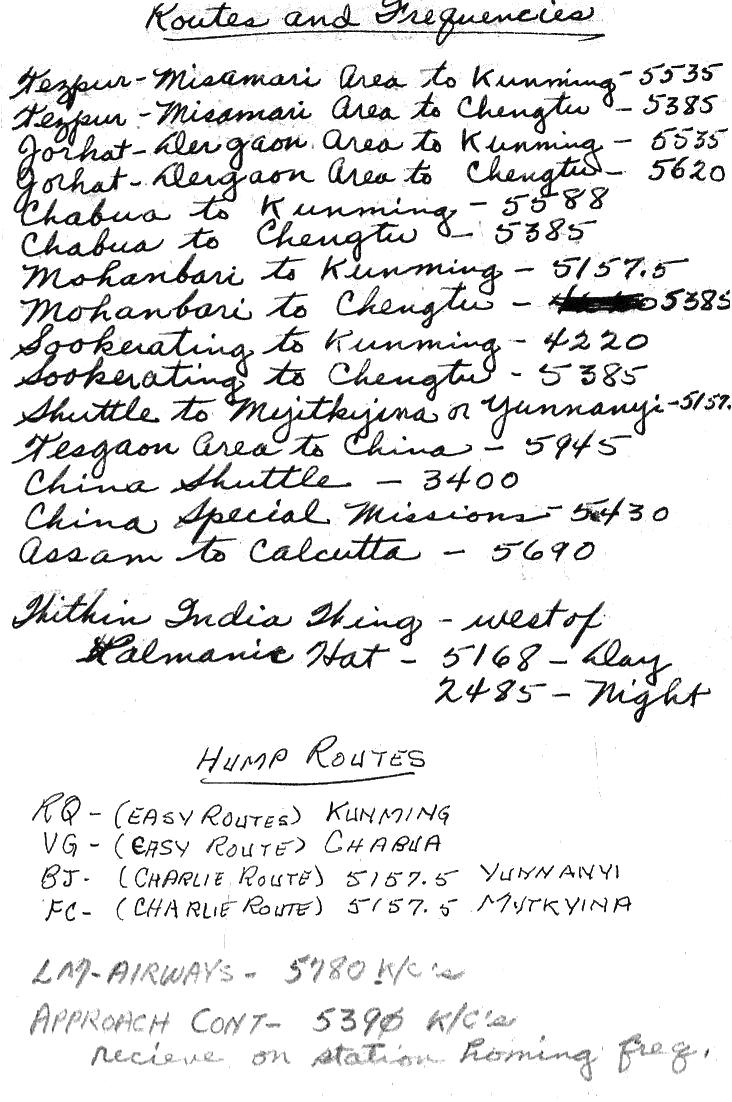 Routes and Frequencies
Tezpur-Misamari Area to Kunming - 5535
Tezpur - Misamari Area to Chengtu - 5385
Jorhat-Dergaon Area to Kunming - 5535
Jorhat-Dergaon Area to Chengtu - 5620
Chabua to Kunming - 5588
Chabua to Chengtu - 5385
Mohanbari to Kunming - 5157.5
Mohanbari to Chengtu - 5385
Sookerating to Kunming - 4220
Sookerating to Chengtu - 5385
Shuttle to Myitkyina or Yunnanyi - 5157.
Tesgaon Area to China - 5945
China Shuttle - 3400
China Special Missions - 5430
Assam to Calcutta - 5690
Within India Wing - west of
Lalmanic Hat - 5168 - Day
2485 - Night
HUMP ROUTES
RQ - (EASY ROUTES) KUNMING
VG - (EASY ROUTE) CHABUA
BJ - (CHARLIE ROUTE) 5157.5 YUNNANYI
FC - (CHARLIE ROUTE) 5157.5 MYTKYINA
LM-AIRWAYS - 5780 K/C's
APPROACH CONT - 5390 K/C's
recieve on station homing freq.